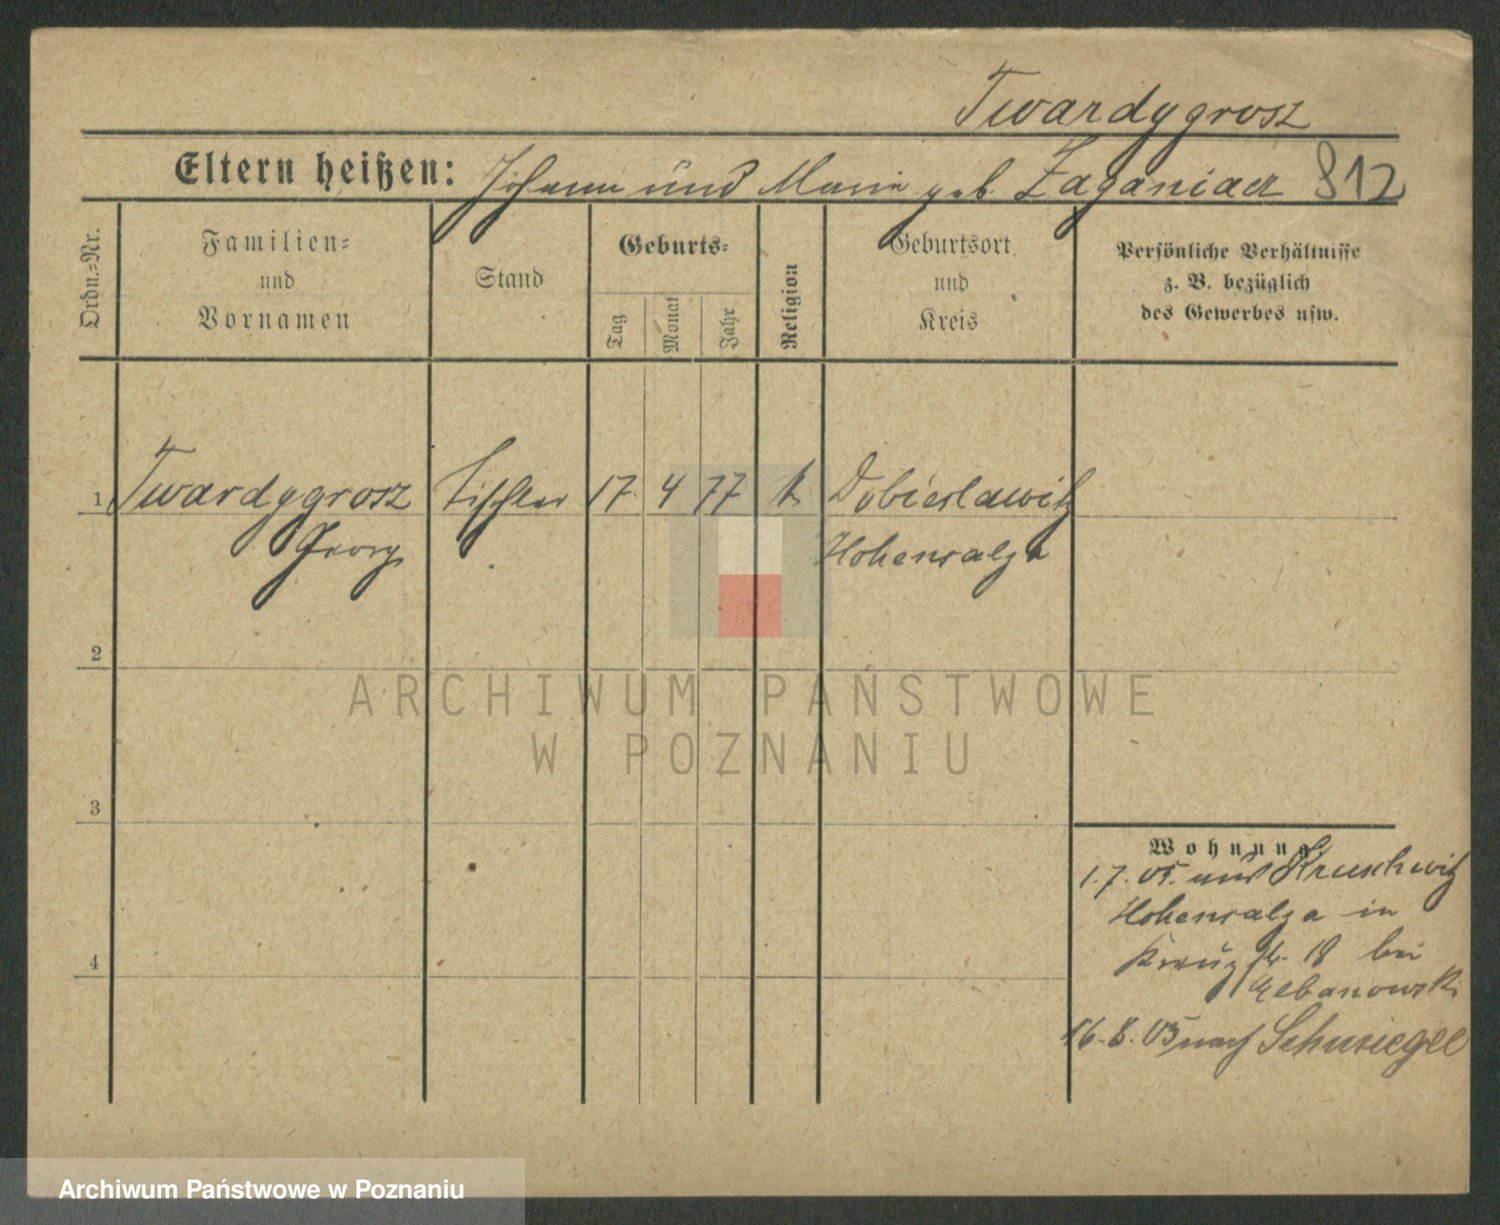 Twardygrosz
Eltern heißen: Johann und Marie geb. Zaganiacz 812
Ordn.=Nr.
Familien=
und
Vornamen
Stand
Geburts=
Tag
Monat
Jahr
Religion
Geburtsort
und
Kreis
Persönliche Verhältnisse
z. B. bezüglich
des Gewerbes usw.
1 Twardygrosz Tischler 17 4 77 k Dobieslawitz
Georg Hohensalza
2
3
4
Wohnung
1.7.05. aus Kruschwitz
Hohensalza in
Kreuzstr. 18 bei
16.8.05 nach Schmiegel
ARCHIWUM PAŃSTWOWE
W POZNANIU
Archiwum Państwowe w Poznaniu